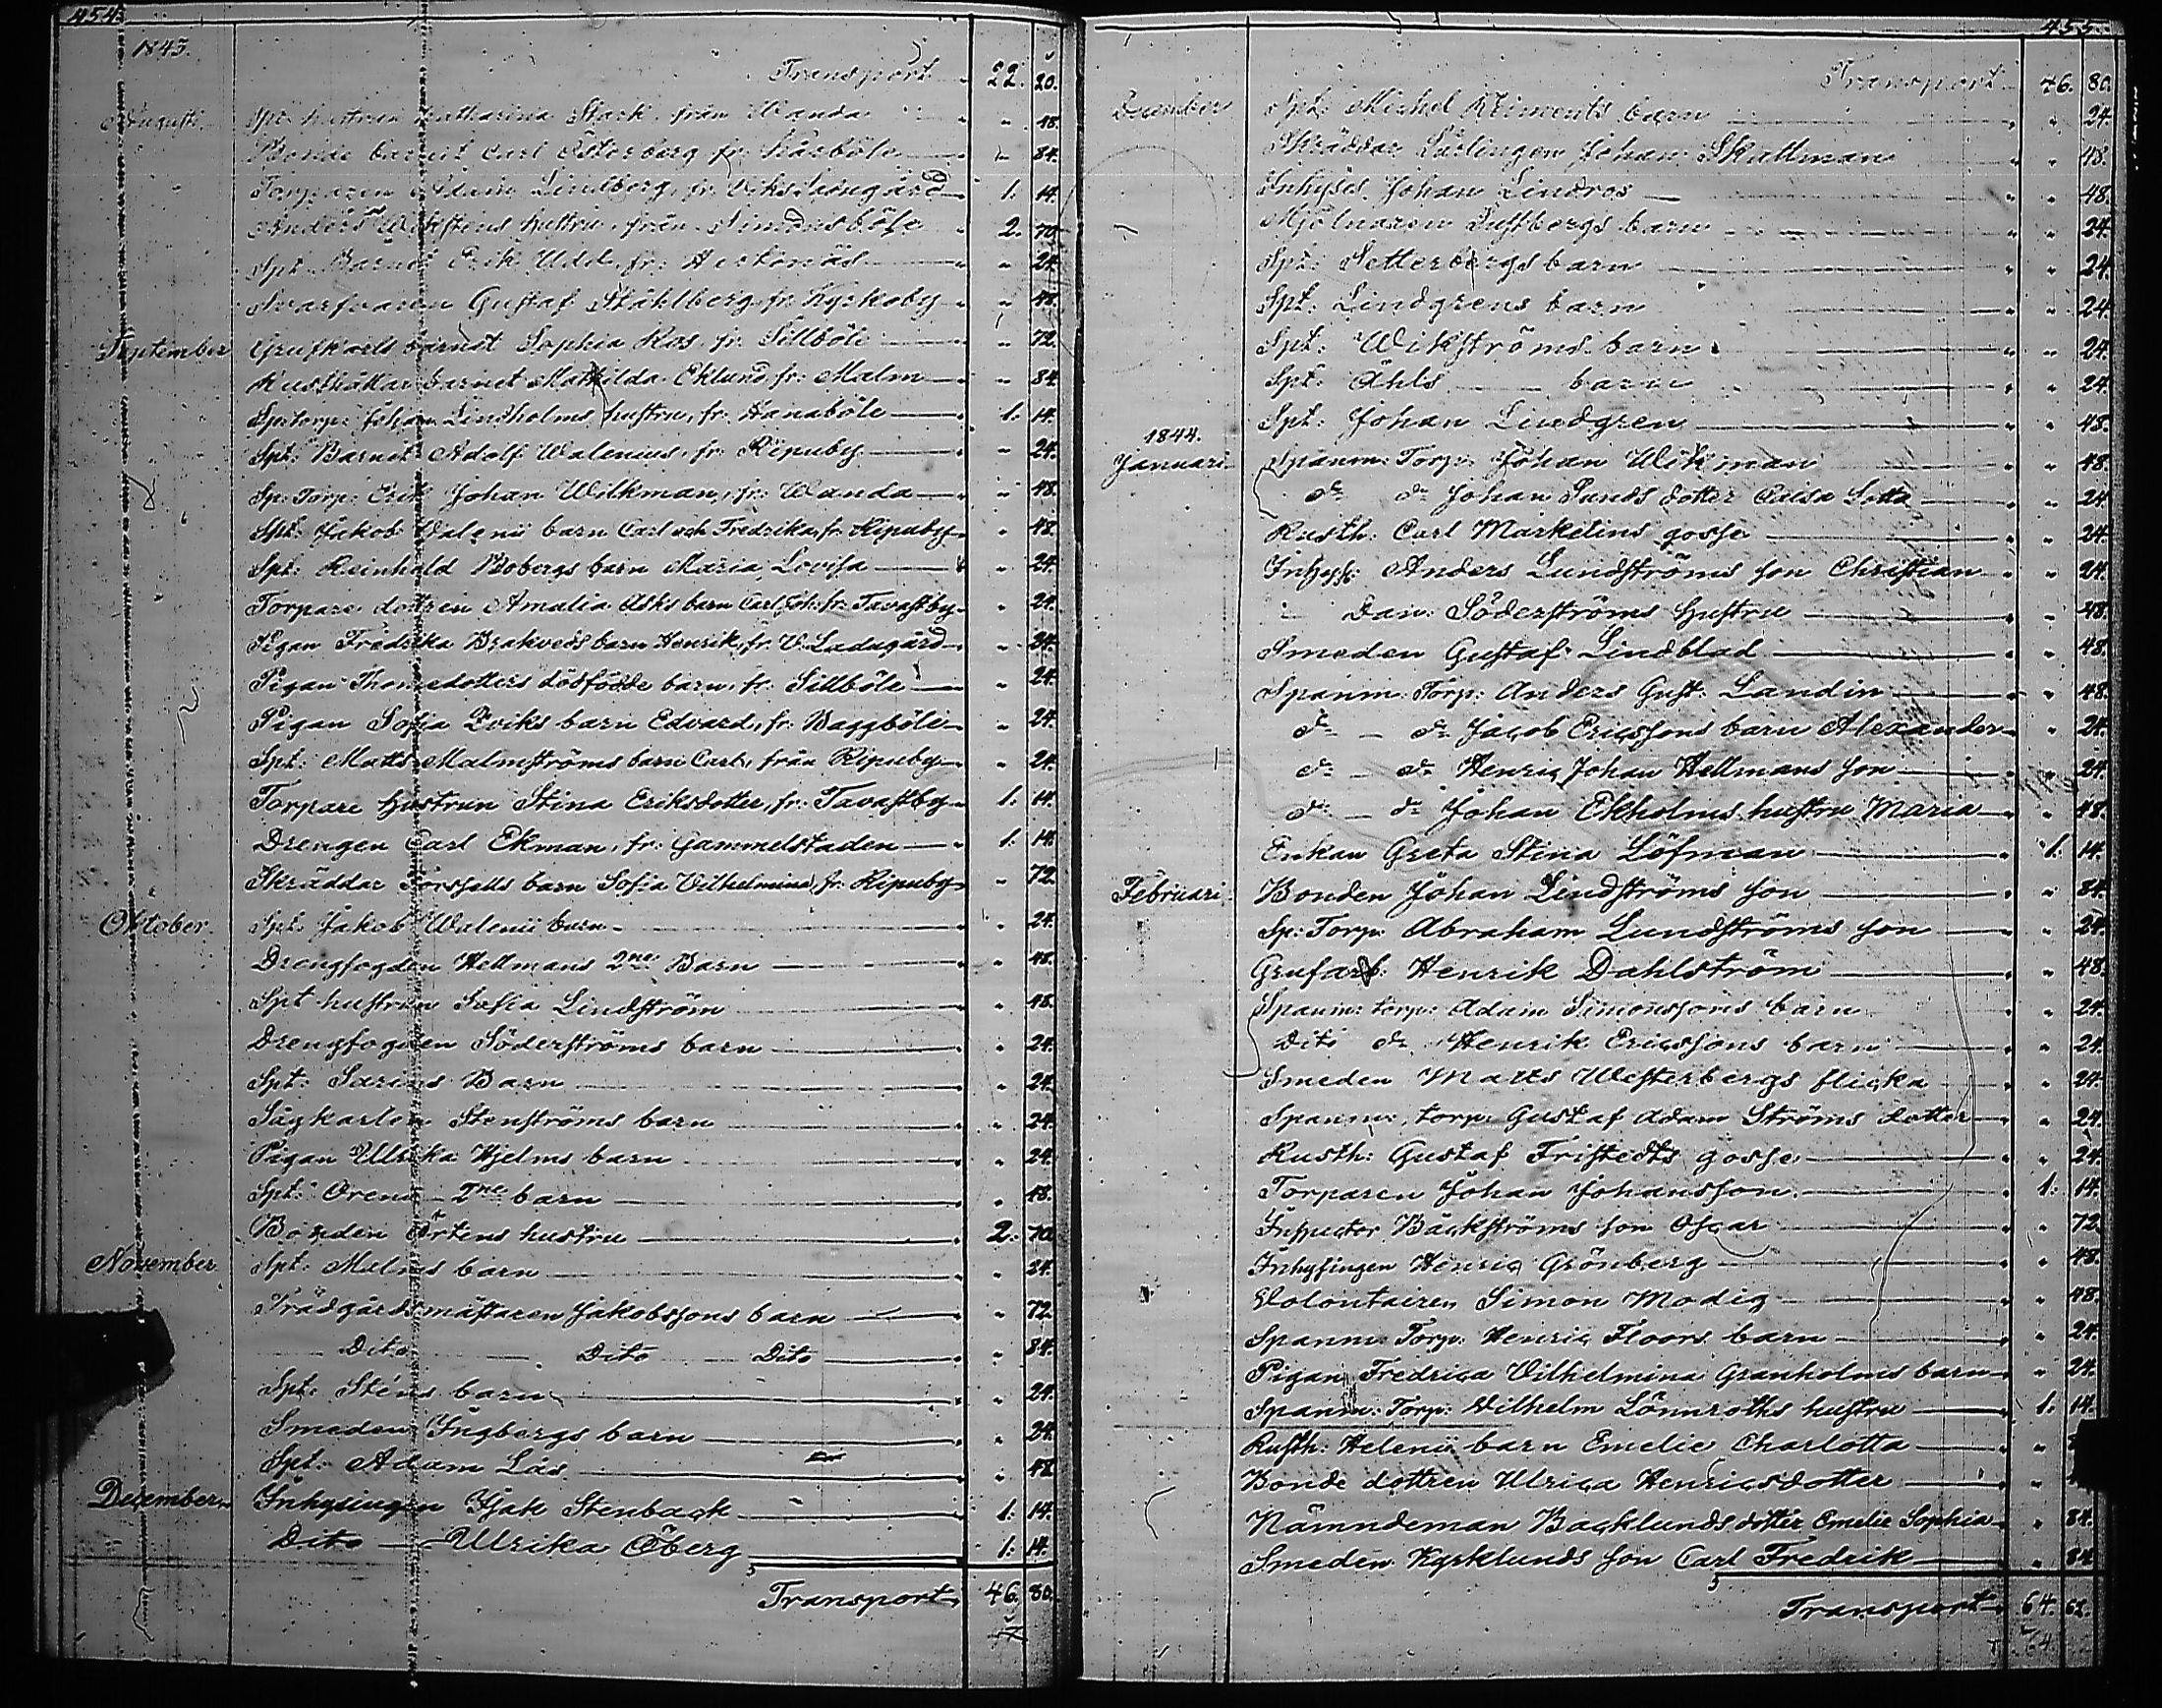 454.
1843.
Transport 22. 20.
Augusti. Spt: hustrun Katharina Stark från Wanda " 48.
Bonde barnet Carl Österberg fr. Kårböle " 84.
Torparen Adam Lindberg, fr. 1. 14.
Anders hustru, från 2. 70.
Spt. Barnet Erik Udd, fr: Hertonäs " 24.
Svarfvaren Gustaf Ståhlberg, fr. Kyrkoby " 48.
September Grufkarls barnet Sophia Ros. fr. Sillböle " 72.
Rusthållar barnet Mathilda Eklund, fr: Malm " 84.
Sp: torp: Johan Lindholms hustru, fr. Hanaböle 1. 14.
Spt: Barnet Adolf Walenius, fr. Ripuby " 24.
Sp: Torp: Erik Johan Wilkman, fr: Wanda " 48.
Spt: Jakob Valenii barn Carl och Fredrika, fr. Ripuby " 48.
Spt: Reinhold Bobergs barn Maria Lovisa " 24.
Torpare dottren Amalia Asks barn Carl Joh: fr: Tavastby " 24.
Pigan Fredrika Brakveds barn Henrik, fr. V. Ladugård " 24.
Pigan Thomedotters dödfödde barn, fr. Sillböle " 24.
Pigan Sofia Eriks barn Edvard, fr. Baggböle " 24.
Spt: Matts Malmströms barn Carl, från Ripuby " 24.
Torpare Hustrun Stina Eriksdotter, fr: Tavastby 1. 14.
Drengen Carl Ekman, fr: Gammelstaden 1. 14.
Skräddar Forsfalls barn Sofia Vilhelmina, fr. Ripuby " 72.
Oktober. Spt. Jakob Walenii barn " 24.
Drengfogden Hellmans 2ne Barn " 48.
Spt hustrun Sofia Lindström " 48.
Drengfogden Söderströms barn " 24.
Spt: Sarins Barn " 24.
Sågkarlen Stenströms barn " 24.
Pigan Ulrika Hjelms barn " 24.
Spt: Orens 2ne barn " 48.
Bonden Örtens hustru 2. 70.
November Spt. Malms barn " 24.
Trädgårdsmästaren Jakobssons barn " 72.
Dito Dito Dito " 84.
Spt: Sténs barn " 24.
Smeden Ingbergs barn " 24.
Spt: Adam Lås " 48.
December. Inhysingen Isak Stenback 1. 14.
Dito Ulrika Öberg 1. 14.
Transport 46. 80.
455.
Transport 46. 80.
December Spt: Michel Kliments barn " 24.
Skräddar Lärlingen Johan Skattman " 48.
Inhyses Johan Lindros " 48.
Mjölnaren Luftbergs barn " 24.
Spt: Setterbergs barn " 24.
Spt: Lindgrens barn " 24.
Spt: Wikströms barn " 24.
Spt: Åhls barn " 24.
Spt: Johan Lindgren " 48.
1844.
Januari Spanm: Torp: Johan Wikman " 48.
do do Johan Lunds dotter Caisa Lotta " 24.
Rusth: Carl Markelins gosse " 24.
Inhys: Anders Lundströms son Christian " 24.
" Dan: Söderströms Hustru " 48.
Smeden Gustaf Lindblad " 48.
Spanm: Torp: Anders Gust: Landin " 48.
do do Jacob Ericssons barn Alexander " 24.
do do Henric Johan Hellmans son " 24.
do do Johan Ekholms hustru Maria " 48.
Enkan Greta Stina Löfman 1. 14.
Februari Bonden Johan Lindströms son " 84.
Sp: Torp: Abraham Lundströms son " 24.
Grufarb: Henrik Dahlström " 48.
Spanm: torp: Adam Simonssons barn " 24.
Dito do Henrik Ericssons barn " 24.
Smeden Matts Westerbergs flicka " 24.
Spanm: torp: Gustaf Adam Ströms dotter " 24.
Rusth: Gustaf Fristedts gosse " 24.
Torparen Johan Johansson 1. 14.
Inspector Bäckströms son Oscar " 72.
Inhysingen Henric Grönberg " 48.
Volontairen Simon Modig " 48.
Spanm: Torp: Henric Floors barn " 24.
Pigan Fredrica Vilhelmina Granholms barn " 24.
Spanm: Torp: Vilhelm Lönnroths hustru 1. 14.
Rusth: Helenii barn Emelie Charlotta "
Bonde dottren Ulrica Henricsdotter "
Nämndeman Backlunds dotter Emelie Sophia " 84.
Smeden Kyrklunds son Carl Fredrik " 84.
Transport 64. 62.
64